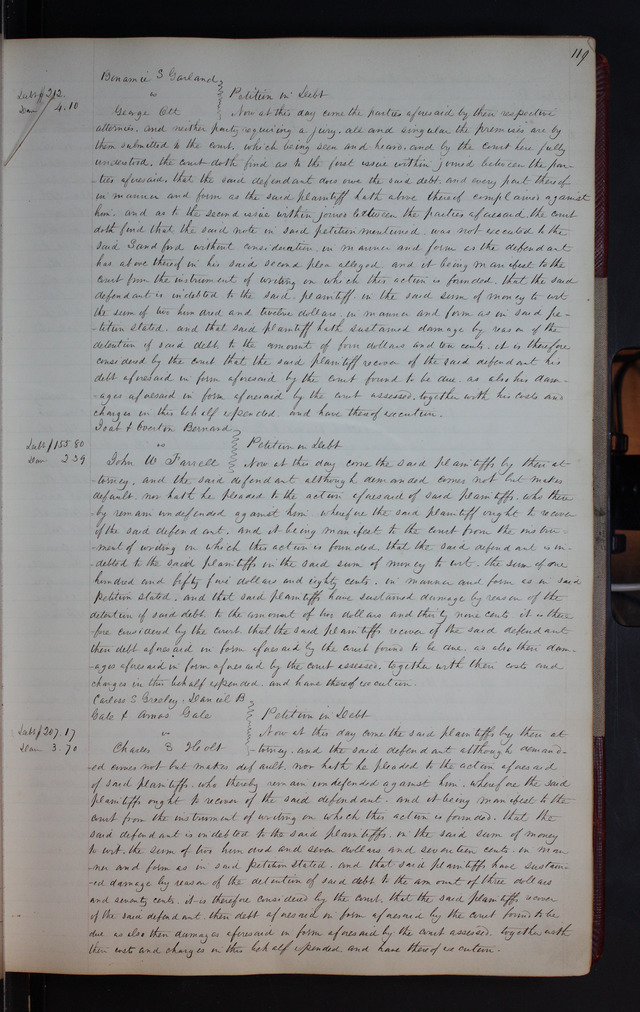 119
Benamie S Garland
Debt $212. vs Petition in Debt
Dam 4.10 George Ott Now at this day come the parties aforesaid by their respective
attornies, and neither party requiring a jury, all and singular the premises are by
them submitted to the court, which being seen and heard, and by the court here fully
understood, the court doth find as to the first issue within joined between the par-
-ties aforesaid, that the said defendant does owe the said debt, and every part thereof
in manner and form as the said plaintiff hath above thereof complained against
him, and as to the second issue within joined between the parties aforesaid, the court
doth find that the said note in said petition mentioned, was not executed to the
said Garland without consideration in manner and form as the defendant
has above thereof in his said second plea alleged, and it being manifest to the
court from the instrument of writing on which this action is founded, that the said
defendant is indebted to the said plaintiff in the said sum of money to wit
the sum of two hundred and twelve dollars, in manner and form as in said pe-
-tition stated, and that said plaintiff hath sustained damage by reason of the
detention of said debt to the amount of four dollars and ten cents, it is therefore
considered by the court that the said plaintiff recover of the said defendant his
debt aforesaid in form aforesaid by the court found to be due, as also his dam-
-ages aforesaid in form aforesaid by the court assessed, together with his costs and
charges in this behalf expended, and have thereof execution.
& Overton Bernard
Debt $155.80 vs Petition in Debt
Dam 2 39 John W Farrell Now at this day come the said plaintiffs by their at-
-torney, and the said defendant although demanded comes not but makes
default, nor hath he pleaded to the action aforesaid of said plaintiffs, who there
by remain undefended against him wherefore the said plaintiff ought to recover
of the said defendant, and it being manifest to the court from the instru-
-ment of writing on which this action is founded, that the said defendant is in-
-debted to the said plaintiffs in the said sum of money to wit, the sum of one
hundred and fifty five dollars and eighty cents, in manner and form as in said
petition stated, and that said plaintiffs have sustained damage by reason of the
detention of said debt to the amount of two dollars and thirty nine cents, it is there
fore considered by the court that the said plaintiffs recover of the said defendant
their debt aforesaid in form aforesaid by the court found to be due, as also their dam-
-ages aforesaid in form aforesaid by the court assessed, together with their costs and
charges in this behalf expended and have thereof execution.
Carlos S Greeley, Daniel B.
Gale & Amas Gale Petition in Debt
Debt $207.17 vs Now at this day come the said plaintiffs by their at
Dam 3.70 Charles B Holt -torney, and the said defendant although demand-
-ed comes not but makes default, nor hath he pleaded to the action aforesaid
of said plaintiffs, who thereby remain undefended against him, wherefore the said
plaintiffs ought to recover of the said defendant, and it being manifest to the
court from the instrument of writing on which this action is founded, that the
said defendant is indebted to the said plaintiffs in the said sum of money
to wit, the sum of two hundred and seven dollars and seventeen cents, in man-
ner and form as in said petition stated, and that said plaintiffs have sustain-
-ed damage by reason of the detention of said debt to the amount of three dollars
and seventy cents, it is therefore considered by the court, that the said plaintiffs recover
of the said defendant, their debt aforesaid in form aforesaid by the court found to be
due as also their damages aforesaid in form aforesaid by the court assessed, together with
their costs and charges in this behalf expended, and have thereof execution.